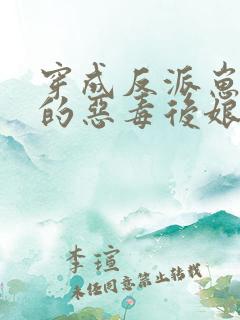 穿成反派崽
的惡毒後娘
李瑄
未任同意禁止转载